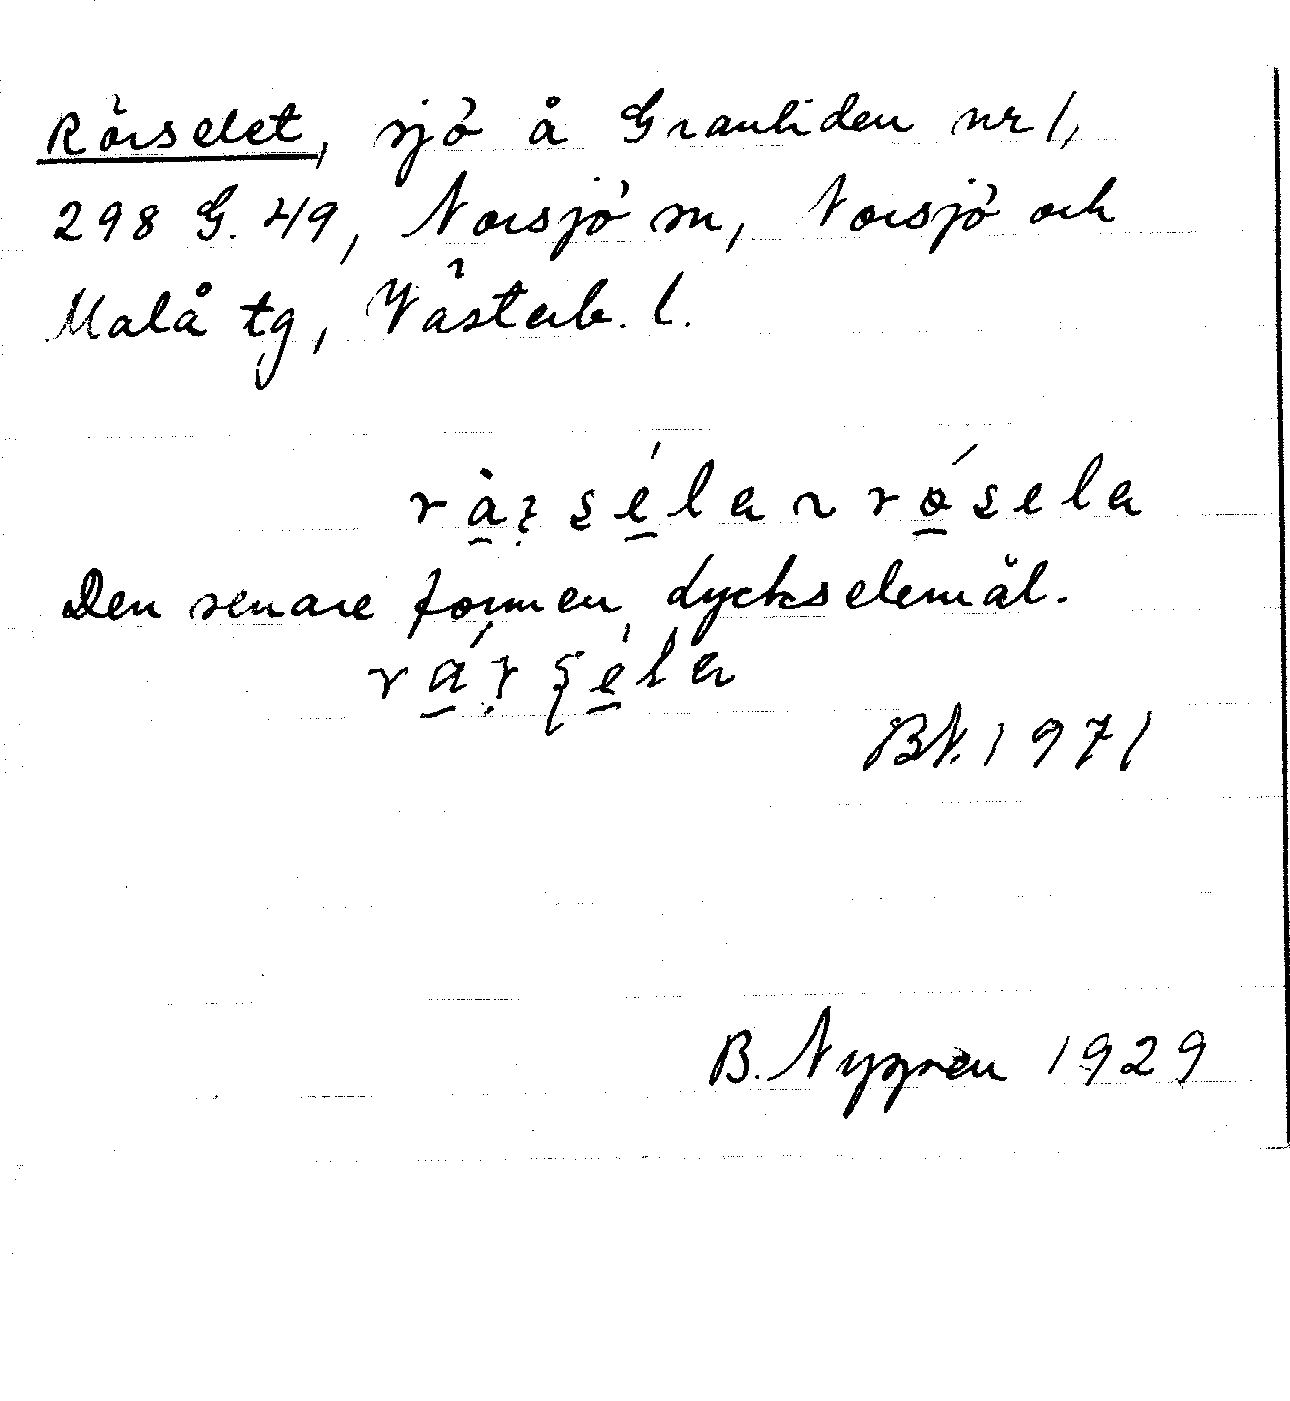 Rörselet, sjö å Granliden nr 1,
298 G. 49, Norsjö sn, Norsjö och
Malå tg, Västerb. l.
Den senare formen dyckselemål.
BN. 1971
B. Nygren 1929